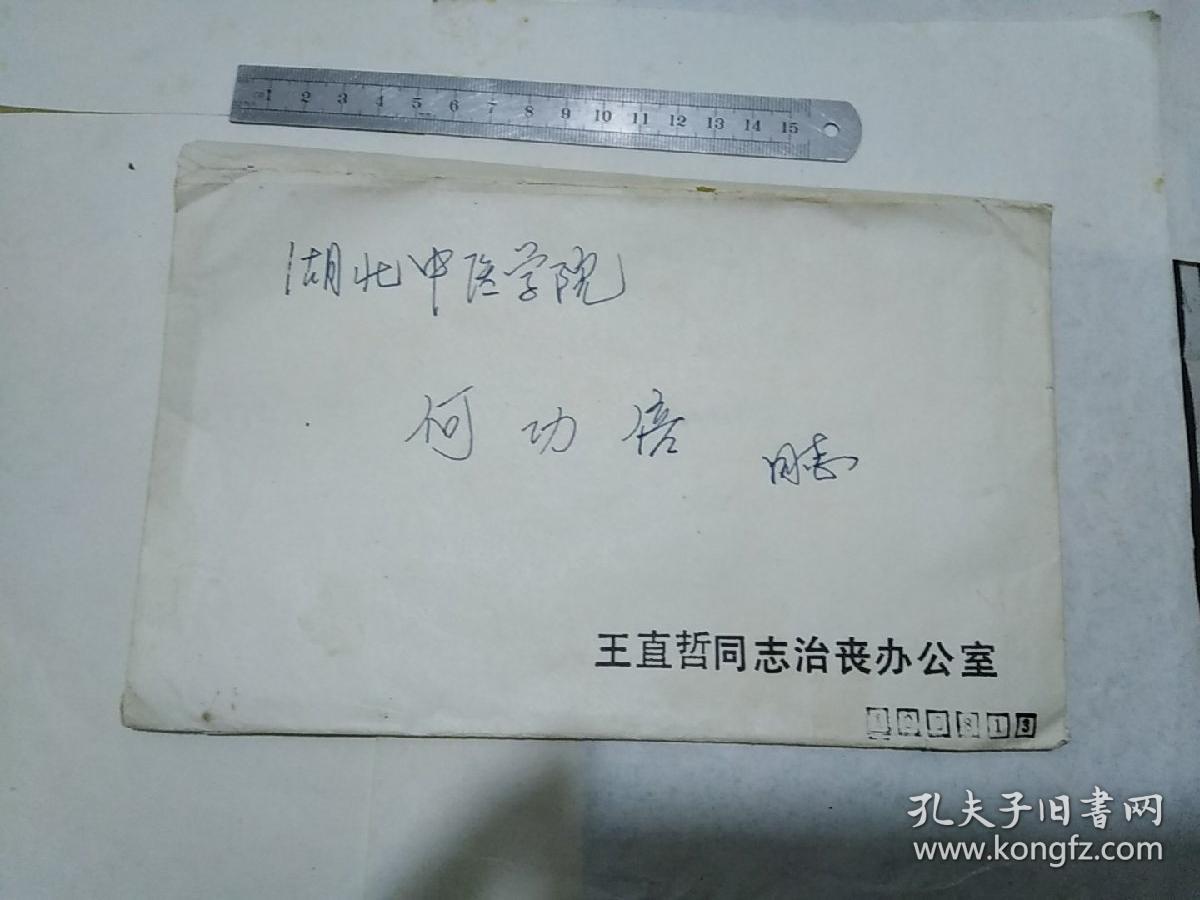 1 2 3 4 5 6 7 8 9 10 11 12 13 14 15
湖北中医学院
何功倍 同志
王直哲同志治丧办公室
100813
孔夫子旧书网
www.kongfz.com